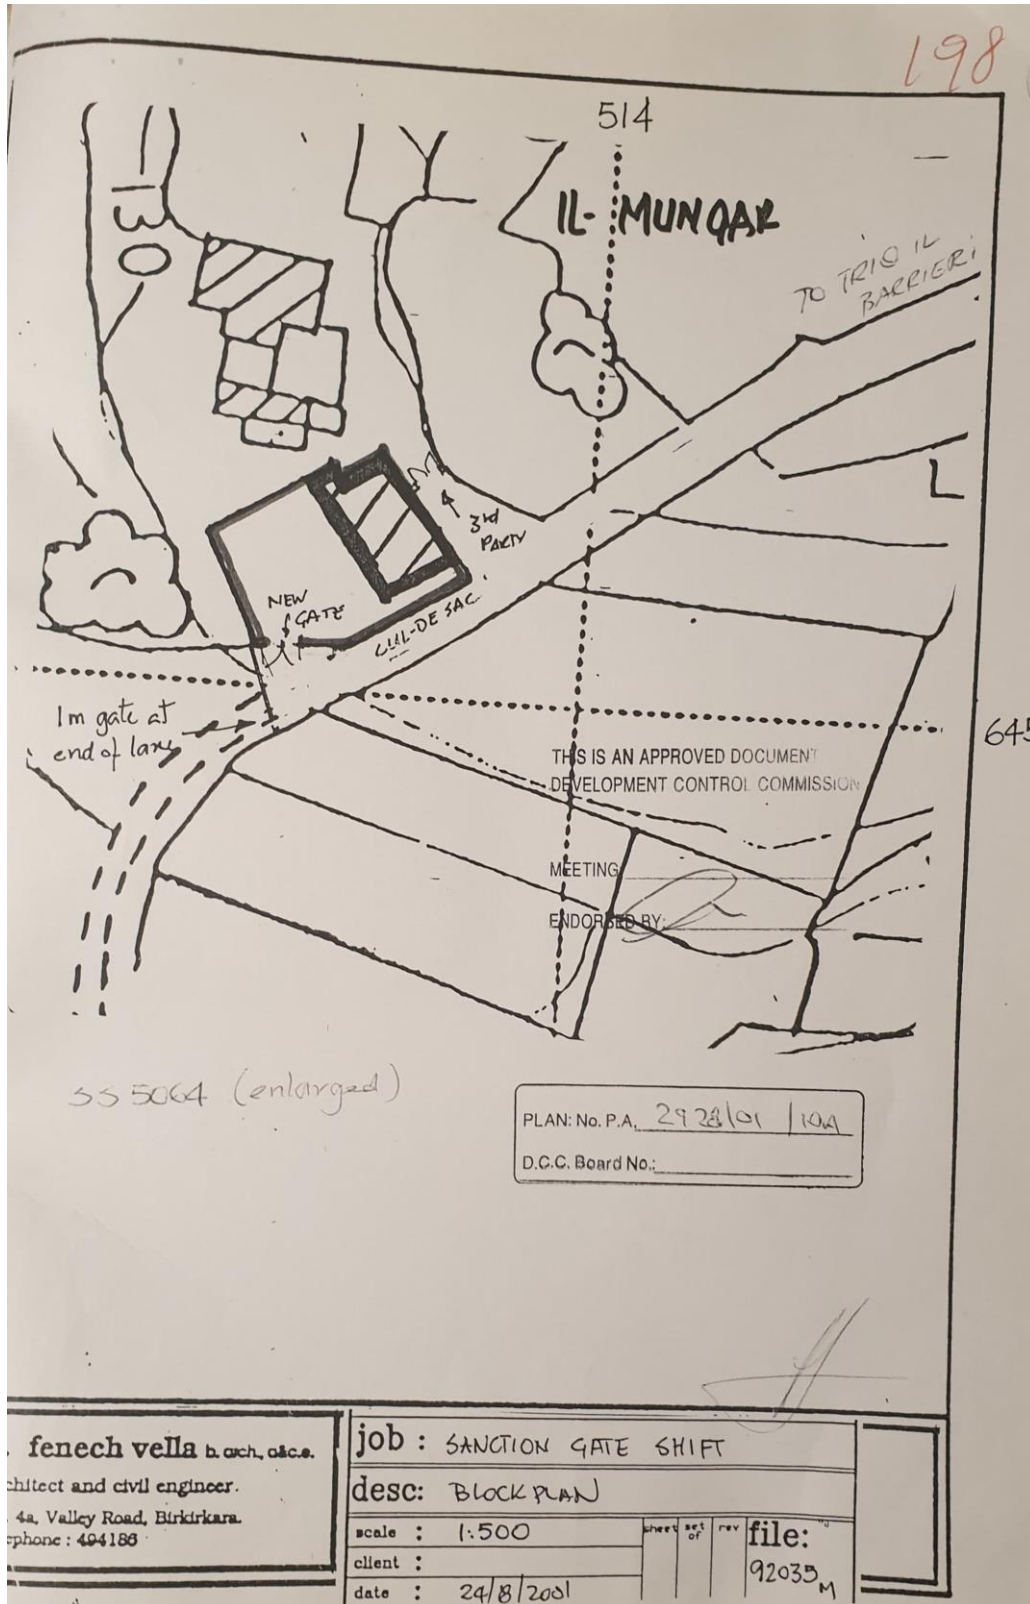 198
514
130
IL-MUNQAR
TO TRIQ IL
BARRIERI
L
3rd
PARTY
NEW
GATE
CUL-DE SAC
1m gate at
end of lane
645
THIS IS AN APPROVED DOCUMENT
DEVELOPMENT CONTROL COMMISSION
MEETING
ENDORSED BY:
SS 5064 (enlarged)
PLAN: No. P.A. 2928/01 /10A
D.C.C. Board No.:
. fenech vella b. arch, a&c.e.
chitect and civil engineer.
4a, Valley Road, Birkirkara.
ephone : 494186
job : SANCTION GATE SHIFT
desc: BLOCK PLAN
scale : 1:500
client :
date : 24/8/2001
sheet set of rev
file:
92035 M